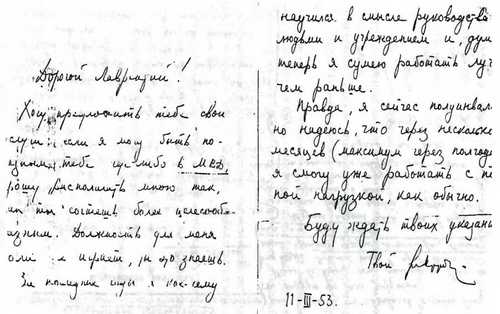 Дорогой Лаврентий!
Хочу предложить тебе свои
услуги: если я могу быть по-
лезным тебе где-либо в МВД,
прошу располагать мною так,
как ты сочтешь более целесообр-
азным. Должность для меня
роли не играет, ты это знаешь.
За последние годы я кое-чему
научился в смысле руководства
людьми и учреждением и, дум
теперь я сумею работать лу
чем раньше.
Правда, я сейчас полуинвал
но надеюсь, что через несколько
месяцев (максимум через полгода
я смогу уже работать с по
ной нагрузкой, как обычно.
Буду ждать твоих указани
Твой
11-III-53.